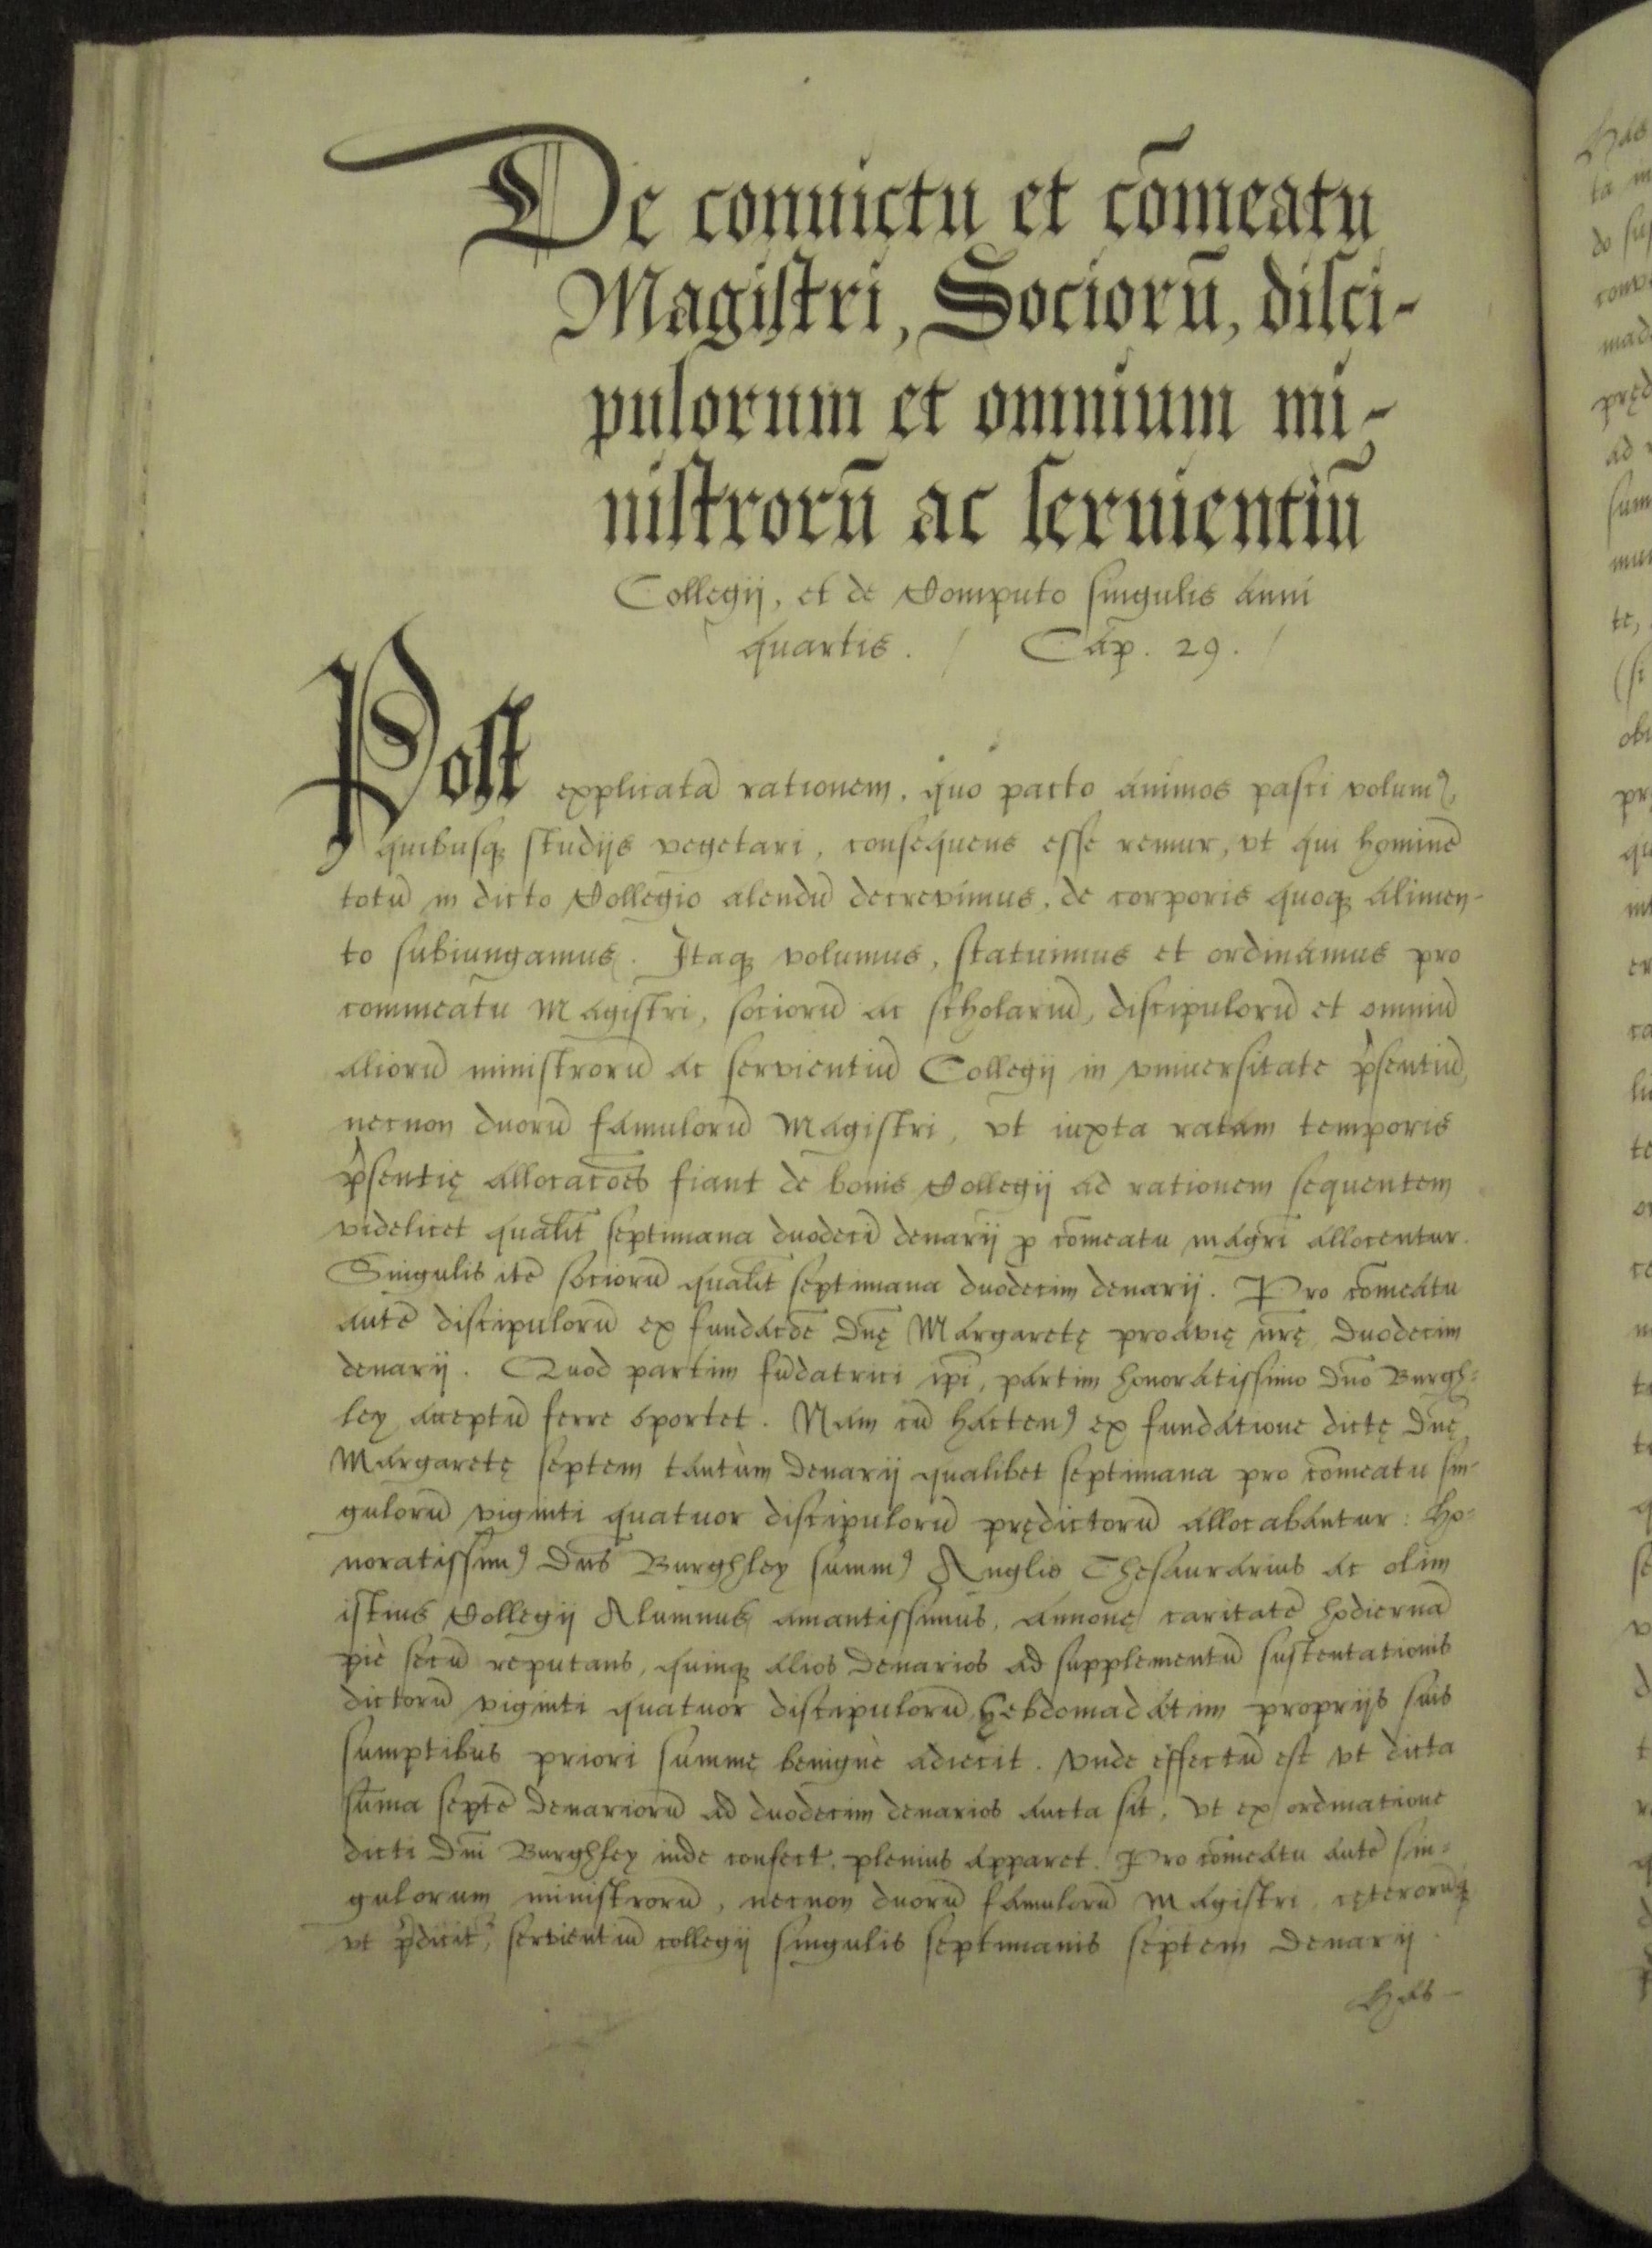 De conuictu et cōmeatu
Magistri, Sociorū, disci-
pulorum et omnium mi-
nistrorū ac seruientiū
Collegij, et de Computo singulis anni
quartis. / Cap. 29. /
Post explicatā rationem, quo pacto animos pasci volumꝰ,
quibusqꝫ studijs vegetari, consequens esse remur, vt qui hominē
totū in dicto Collegio alendū decrevimus, de corporis quoqꝫ alimen-
to subiungamus. Itaqꝫ volumus, statuimus et ordinamus pro
commeatu Magistri, sociorū ac scholariū, discipulorū et omniū
aliorū ministrorū ac servientiū Collegij in vniuersitate p̄sentiū,
necnon duorū famulorū Magistri, vt iuxta ratam temporis
p̄sentię allocac̄oēs fiant de bonis Collegij ad rationem sequentem
videlicet qualīt septimana duodecī denarij ꝑ cōmeatu magr̄i allocentur.
Singulis itē sociorū qualīt septimana duodecim denarij. Pro cōmeatu
autē discipulorū ex fundac̄oē Dn̄ę Margaretę proavię nr̄ę, duodecim
denarij. Quod partim fūdatrici ip̄i, partim honoratissimo Dn̄o Burgh=
ley acceptū ferre oportet. Nam cū hactenꝰ ex fundatione dictę Dn̄ę
Margaretę septem tantùm denarij qualibet septimana pro cōmeatu sin-
gulorū viginti quatuor discipulorū prędictorū allocabantur: Ho=
noratissimꝰ Dn̄s Burghley summꝰ Anglie Thesaurarius ac olim
istius Collegij Alumnus amantissimus, annonę caritatē hodiernā
piè secū reputans, quinqꝫ alios denarios ad supplementū sustentationis
dictorū viginti quatuor discipulorū hebdomadatim proprijs suis
sumptibus priori summę benignè adiecit. Vnde effectū est vt dicta
sūma septē denariorū ad duodecim denarios aucta sit, vt ex ordinatione
dicti Dn̄i Burghley inde confect. plenius apparet. Pro cōmeatu autē sin=
gulorum ministrorū, necnon duorū famulorū Magistri, cęterorūqꝫ
vt p̄dicit᷑, servientiū collegij singulis septimanis septem denarij.
Has-